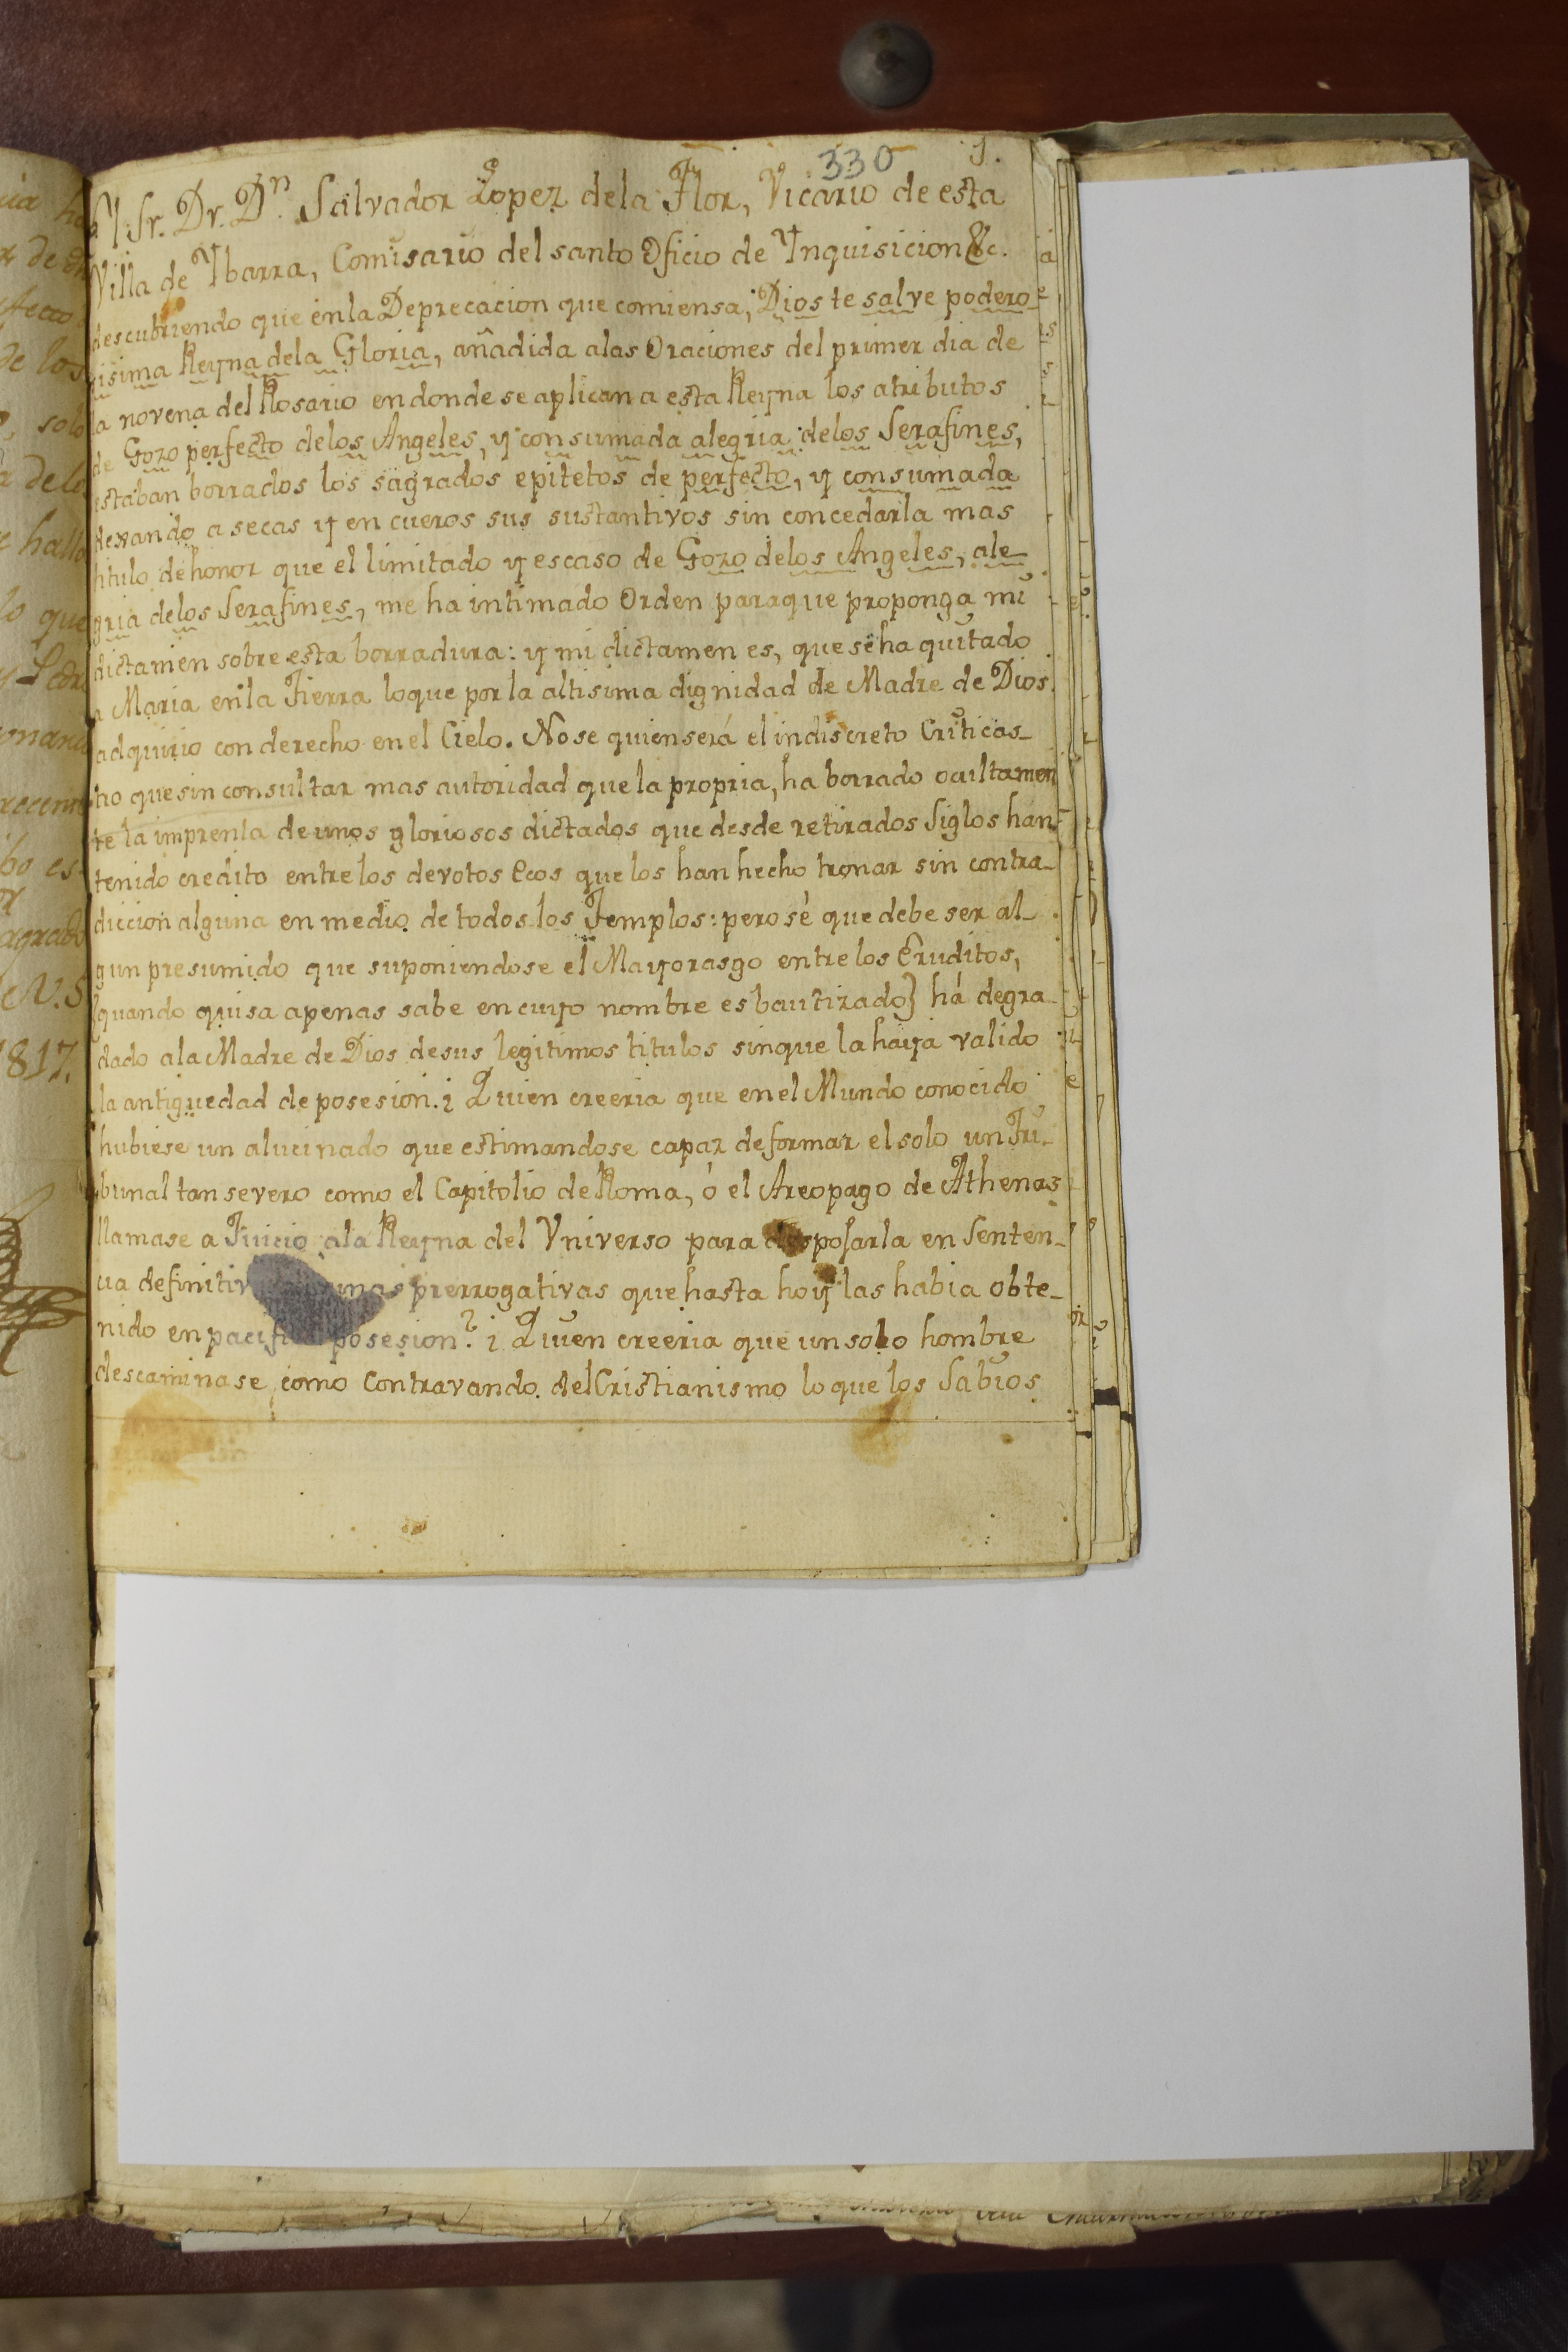 330 1.
El Sr. Dr. Dn. Salvador Lopez dela Flor, Vicario de esta
Villa de Ybarra, Comisario del santo Oficio de Ynquisicion &c.
descubriendo que enla Deprecacion que comiensa, Dios te salve podero-
sisima Reyna dela Gloria, añadida alas Oraciones del primer dia de
la novena del Rosario en donde se aplican a esta Reyna los atributos
de Gozo perfecto delos Angeles, y consumada alegria delos Serafines,
estaban borrados los sagrados epitetos de perfecto, y consumada
dexando a secas y en cueros sus sustantivos sin concedarla mas
titulo de honor que el limitado y escaso de Gozo delos Angeles, ale
gria delos Serafines, me ha intimado Orden paraque proponga mi
dictamen sobre esta borradura: y mi dictamen es, que se ha quitado
a Maria enla Tierra loque por la altisima dignidad de Madre de Dios
adquirio con derecho en el Cielo. Nose quien será el indiscreto Criticas-
tro que sin consultar mas autoridad que la propria, ha borrado ocultamen
te la imprenta de unos gloriosos dictados que desde retirados Siglos han
tenido credito entre los devotos Ecos que los han hecho tronar sin contra-
diccion alguna en medio de todos los Templos: pero sé que debe ser al-
gun presumido que suponiendose el Mayorasgo entre los Eruditos,
(quando quisa apenas sabe en cuyo nombre es bautizado) há degra-
dado ala Madre de Dios desus legitimos titulos sinque la haya valido
la antiguedad de posesion. ¿Quien creeria que en el Mundo conocido
hubiese un alucinado que estimandose capaz deformar el solo un Tri-
bunal tan severo como el Capitolio de Roma, ó el Areopago de Athenas
llamase a Juicio ala Reyna del Vniverso para desposarla en Senten-
cia definitiv unas prerrogativas que hasta hoy las habia obte-
nido en pacifi posesion? ¿Quien creeria que un solo hombre
descaminase como Contravando del Cristianismo lo que los Sabios
1817.